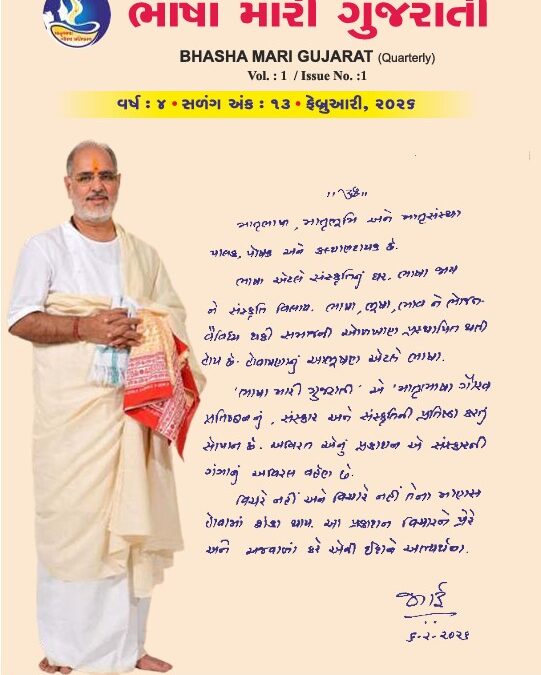 ભાષા મારી ગુજરાતી
BHASHA MARI GUJARAT (Quarterly)
Vol. : 1 / Issue No. :1
વર્ષ : ૪ • સળંગ અંક : ૧૩ • ફેબ્રુઆરી, ૨૦૨૬
॥ૐ॥
માતૃભાષા, માતૃભૂમિ અને માતૃસંસ્થા
પાલક, પોષક અને કલ્યાણદાયક છે.
ભાષા એટલે સંસ્કૃતિનું ઘર. ભાષા જાય
ને સંસ્કૃતિ વિલાય. ભાષા, ભૂષા, ભાવ ને ભોજન-
વૈવિધ્ય થકી સમાજની ઓળખાણ પ્રસ્થાપિત થતી
હોય છે. હોવાપણાનું આભૂષણ એટલે ભાષા.
'ભાષા મારી ગુજરાતી' એ 'માતૃભાષા ગૌરવ
પ્રતિષ્ઠાનનું, સંસ્કાર અને સંસ્કૃતિની પ્રતિષ્ઠા કરતું
સોપાન છે. અવિરત એનું પ્રકાશન એ સંસ્કારની
ગંગાનું અવિરત વહેણ છે.
વિચરે નહીં અને વિચારે નહીં તેના માણસ
હોવામાં શંકા થાય. આ પ્રકાશન વિચારને પ્રેરે
અને અજવાળાં કરે એવી હૃદયે અભ્યર્થના.
ભાઈ
૬-૨-૨૦૨૬